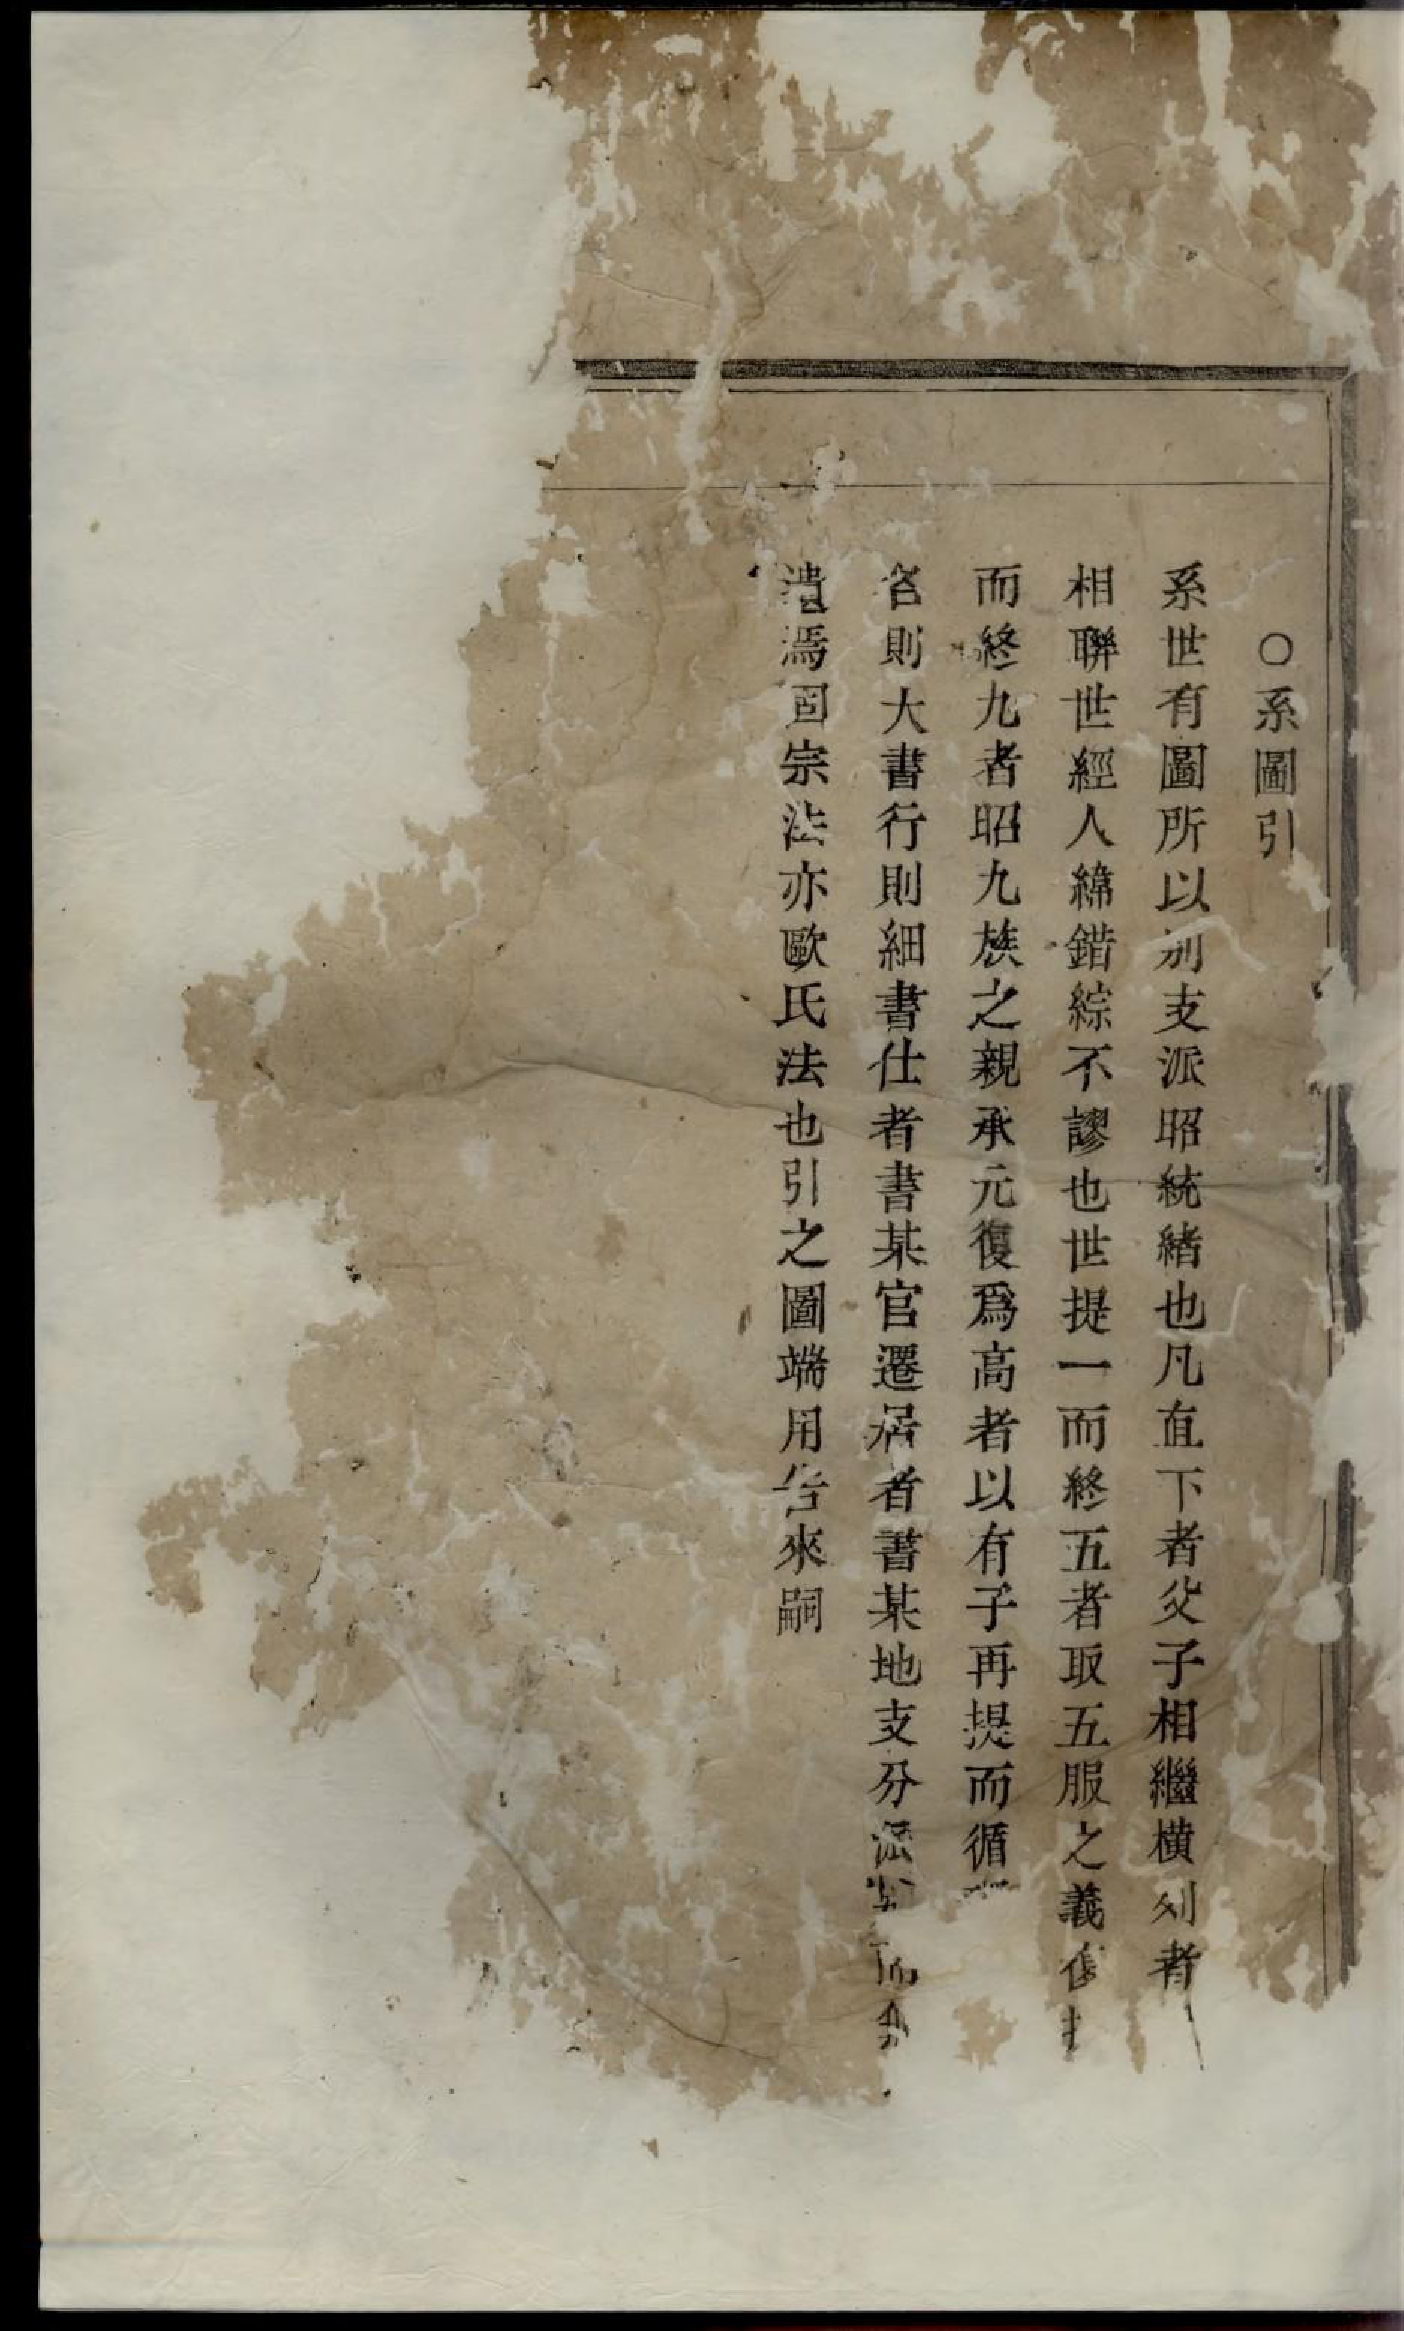 ○系圖引
系世有圖所以別支派昭統緒也凡直下者父子相繼橫列者
相聯世經人緯錯綜不謬也世提一而終五者取五服之義
而終九者昭九族之親承元復爲高者以有子再提而循
名則大書行則細書仕者書某官遷居者書某地支分派
遺焉固宗法亦歐氏法也引之圖端用告來嗣